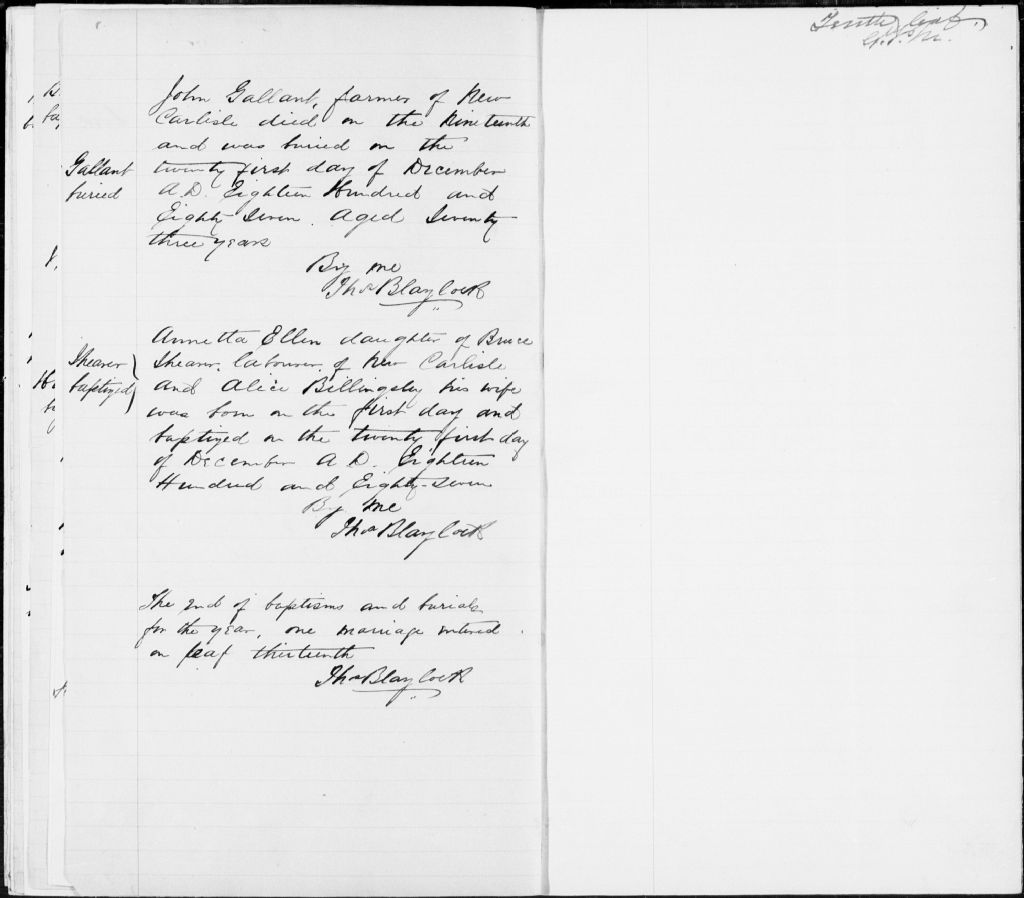 John Gallant, farmer of New
Carlisle died on the Nineteenth
and was buried on the
Gallant
buried
twenty first day of December
A.D. Eighteen Hundred and
Eighty Seven. Aged Seventy
three years
By me
Thos Blaylock
Annetta Ellen daughter of Bruce
Shearer
baptized
Shearer, labourer, of New Carlisle
and Alice Billingsley his wife
was born on the first day and
baptized on the twenty first day
of December A.D. Eighteen
Hundred and Eighty-Seven
By me
Thos Blaylock
The end of baptisms and burials
for the year, one marriage entered
on leaf thirteenth
Thos Blaylock
Tenth leaf.